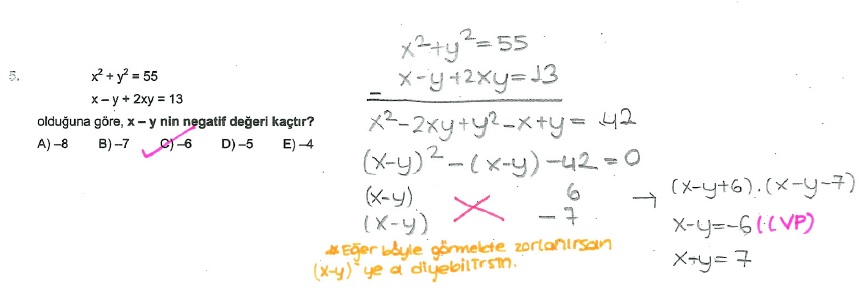 5.
x² + y² = 55
x – y + 2xy = 13
olduğuna göre, x – y nin negatif değeri kaçtır?
A) –8 B) –7 C) –6 D) –5 E) –4
x²+y²=55
– x-y+2xy=13
x²-2xy+y²-x+y=42
(x-y)²-(x-y)-42=0
(x-y) 6
(x-y) -7
→ (x-y+6).(x-y-7)
x-y=-6 ((VP)
x-y=7
* Eğer böyle görmekte zorlanırsan
(x-y) ye a diyebilirsin.